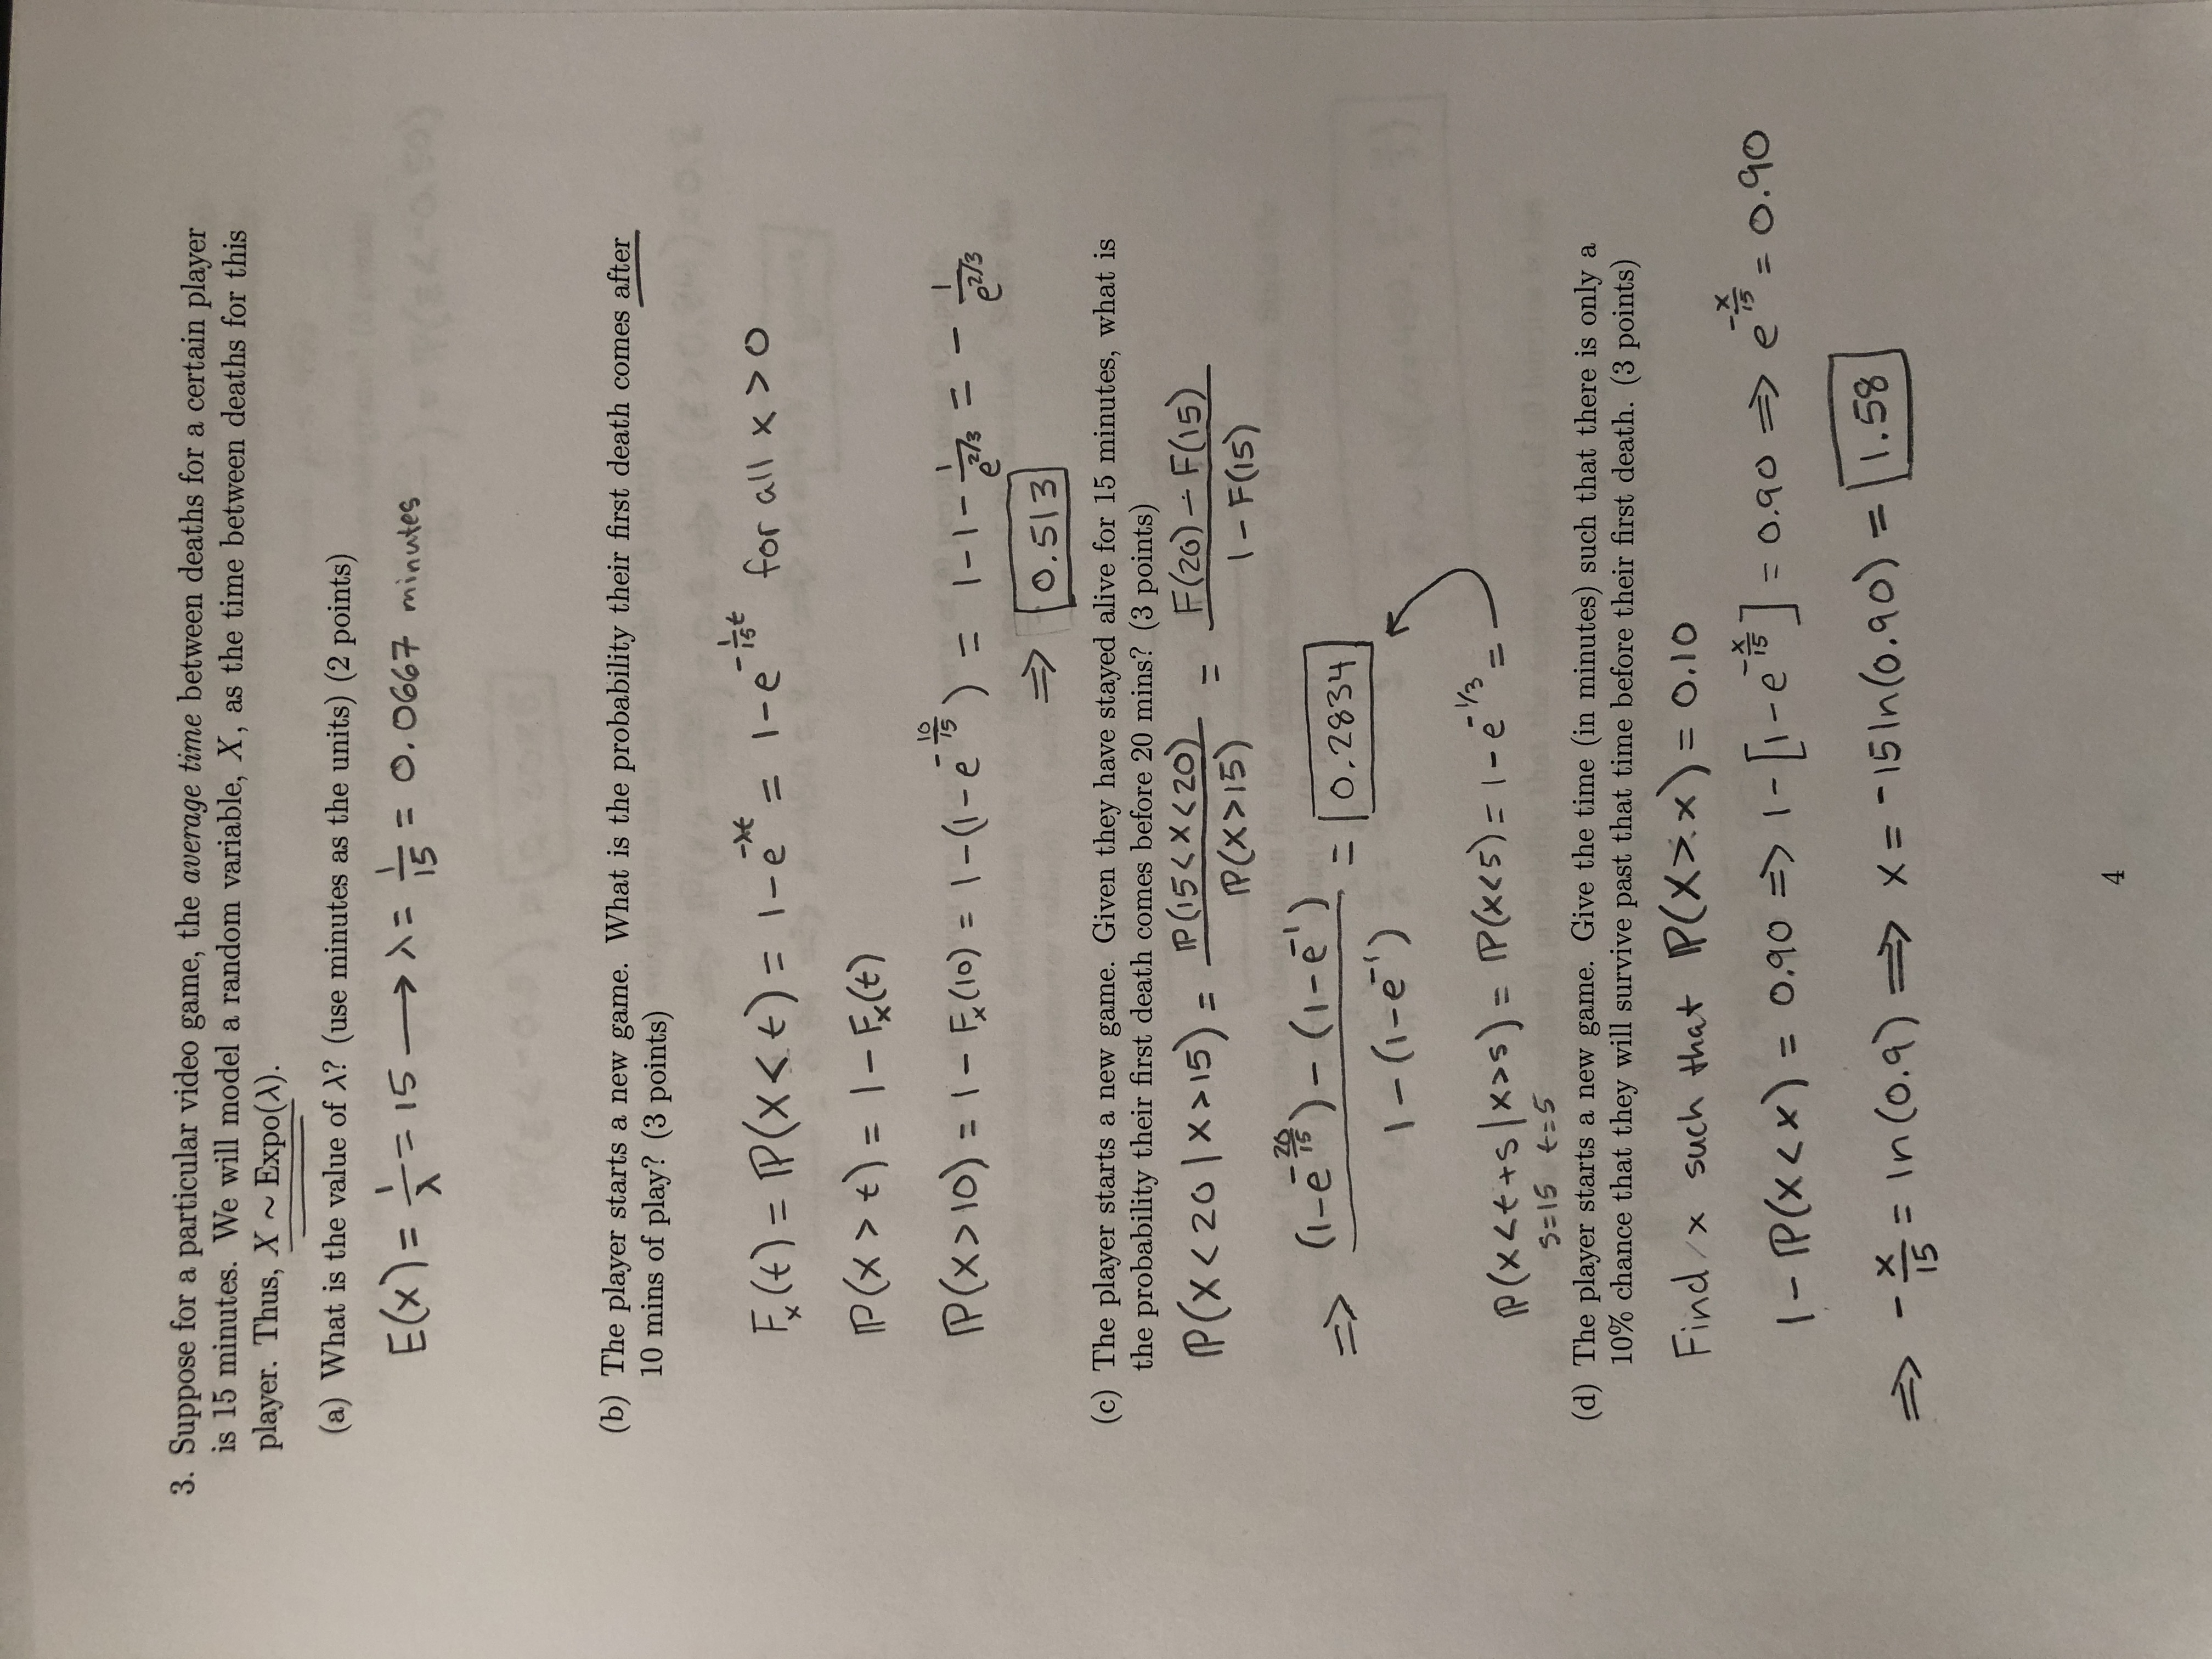 3. Suppose for a particular video game, the average time between deaths for a certain player
is 15 minutes. We will model a random variable, X, as the time between deaths for this
player. Thus, X ∼ Expo(λ).
(a) What is the value of λ? (use minutes as the units) (2 points)
E(x) = 1/λ = 15 ⟶ λ = 1/15 = 0.0667 minutes
(b) The player starts a new game. What is the probability their first death comes after
10 mins of play? (3 points)
F_x(t) = ℙ(X < t) = 1-e^{-λt} = 1-e^{-1/15 t} for all x > 0
ℙ(X > t) = 1 - F_x(t)
ℙ(X > 10) = 1 - F_x(10) = 1-(1-e^{-10/15}) = 1-1-1/e^{2/3} = -1/e^{2/3}
⇒ 0.513
(c) The player starts a new game. Given they have stayed alive for 15 minutes, what is
the probability their first death comes before 20 mins? (3 points)
ℙ(X < 20 | X > 15) = ℙ(15 < X < 20) / ℙ(X > 15) = F(20) - F(15) / 1 - F(15)
⇒ (1-e^{-20/15}) - (1-e^{-1}) / 1-(1-e^{-1}) = 0.2834
ℙ(X < t+s | X > s) = ℙ(X < 5) = 1-e^{-1/3} =
s=15 t=5
(d) The player starts a new game. Give the time (in minutes) such that there is only a
10% chance that they will survive past that time before their first death. (3 points)
Find x such that ℙ(X > x) = 0.10
1 - ℙ(X < x) = 0.90 ⇒ 1-[1-e^{-x/15}] = 0.90 ⇒ e^{-x/15} = 0.90
⇒ -x/15 = ln(0.9) ⟹ x = -15ln(0.90) = 1.58
4